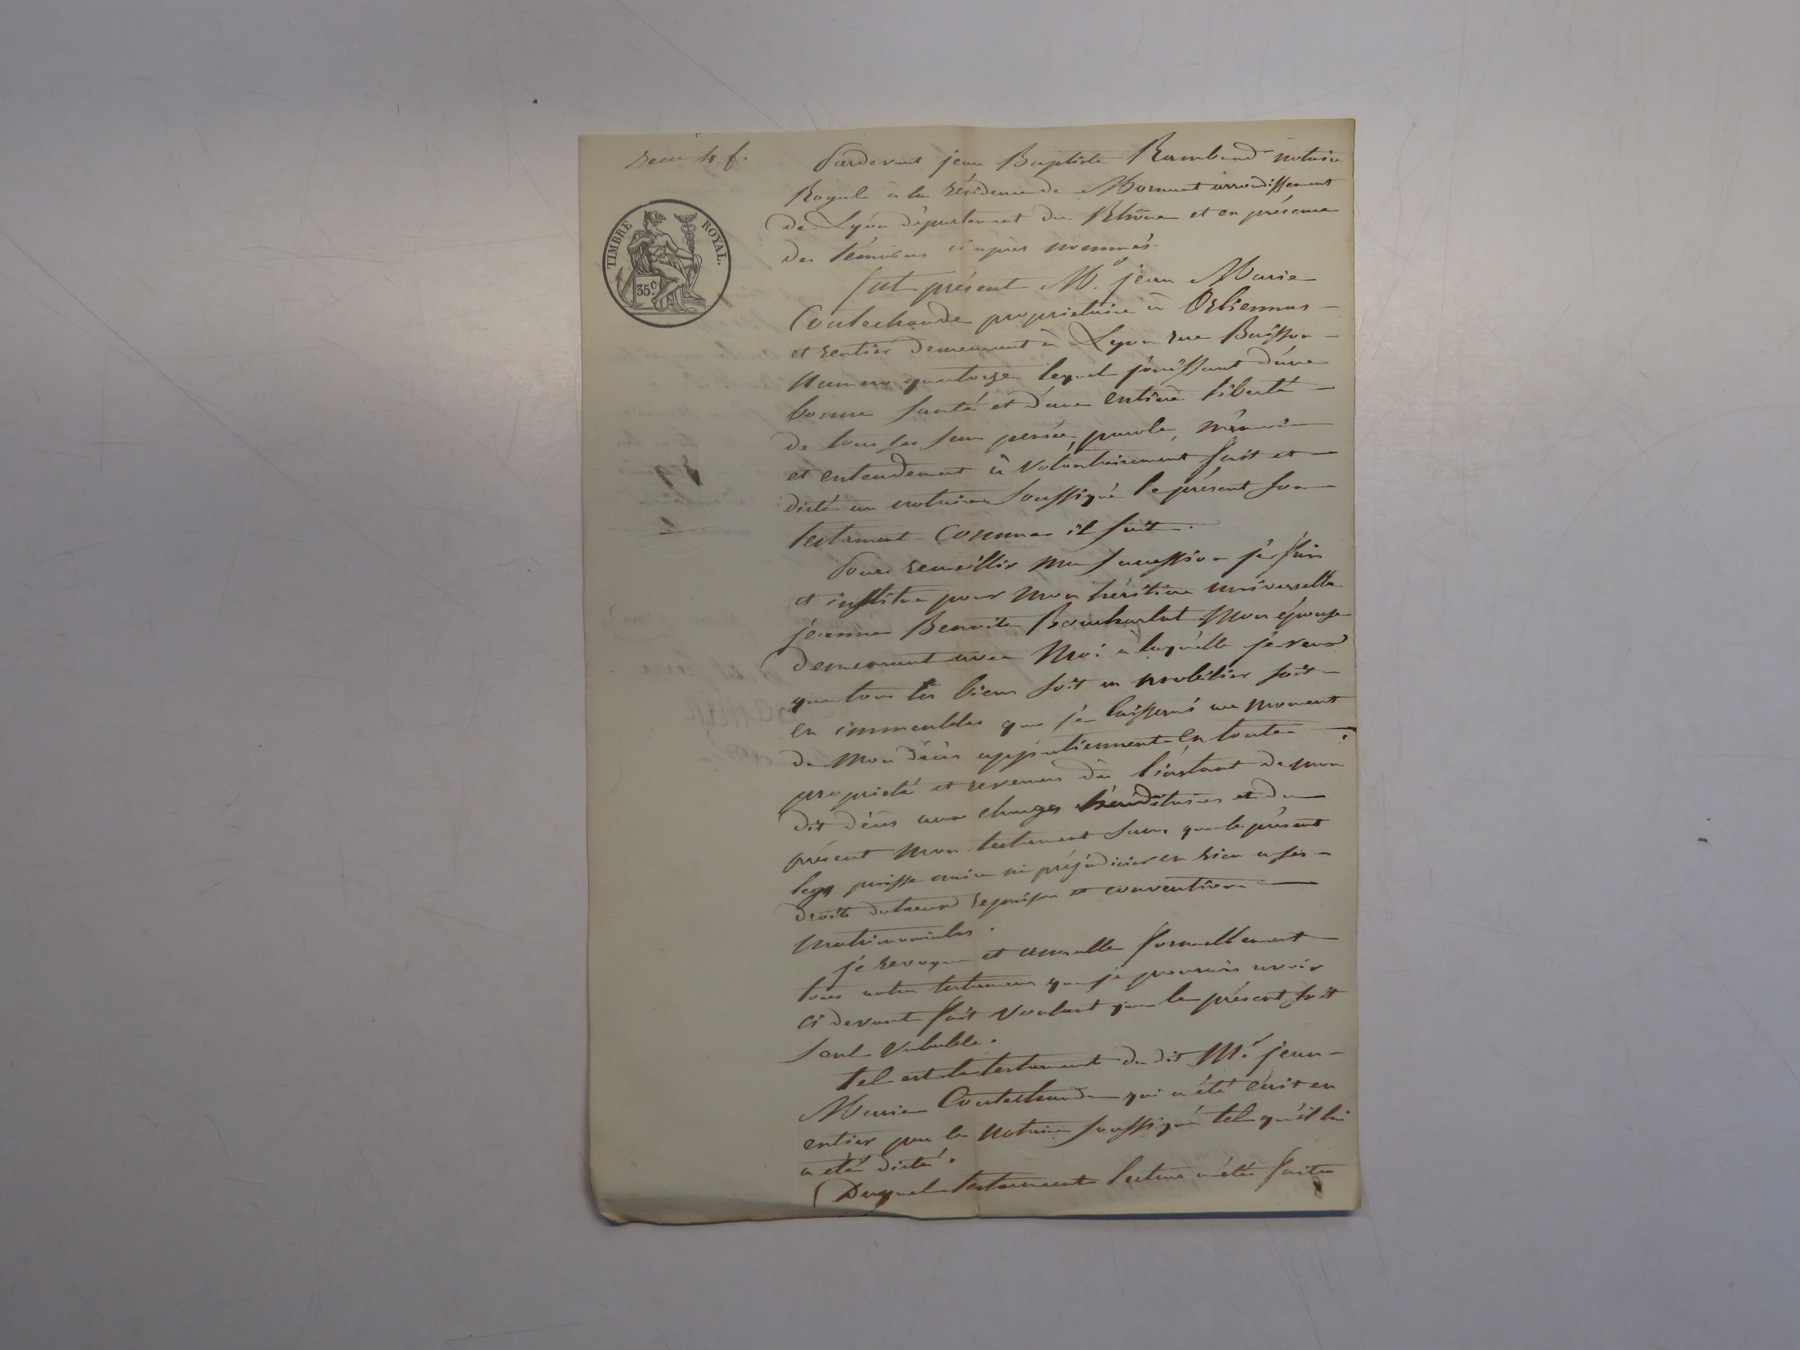 recu 4 f.
TIMBRE ROYAL.
35 c
Pardevant jean Baptiste Rambaud notaire
Royal à la résidence de Mornant arrondissement
de Lyon département du Rhône et en présence
des témoins ci après nommés.
fut présent Mr. jean Marie
Coutechaude propriétaire à Orliennas
et rentier demeurant à Lyon rue Buisson
numero quatorze lequel jouissant d'une
bonne santé et d'une entière liberté
de tous ses sens pensée, parole, mémoire
et entendement à volontairement fait et
dicté au notaire soussigné le présent son
testament comme il suit.
Pour recueillir ma succession je fais
et institue pour mon héritière universelle
jeanne Benoite Boucharlat mon épouse
demeurant avec moi à laquelle je veux
que tous les biens soit en mobilier soit
en immeubles que je laisserai au moment
de mon décès appartiennent en toute
propriété et revenus dès l'instant de mon
dit décès aux charges héréditaires et du
présent mon testament sans que le présent
legs puisse nuire ni préjudicier en rien a ses
droits dotaux reprises et conventions
matrimoniales.
je revoque et annulle formellement
tous autres testamens que je pourrais avoir
ci devant fait voulant que le présent soit
seul valable.
tel est le testament du dit Mr. jean
Marie Coutechaude qui a été écrit en
entier par le notaire soussigné tel qu'il lui
a été dicté.
Duquel testament lecture a été faite